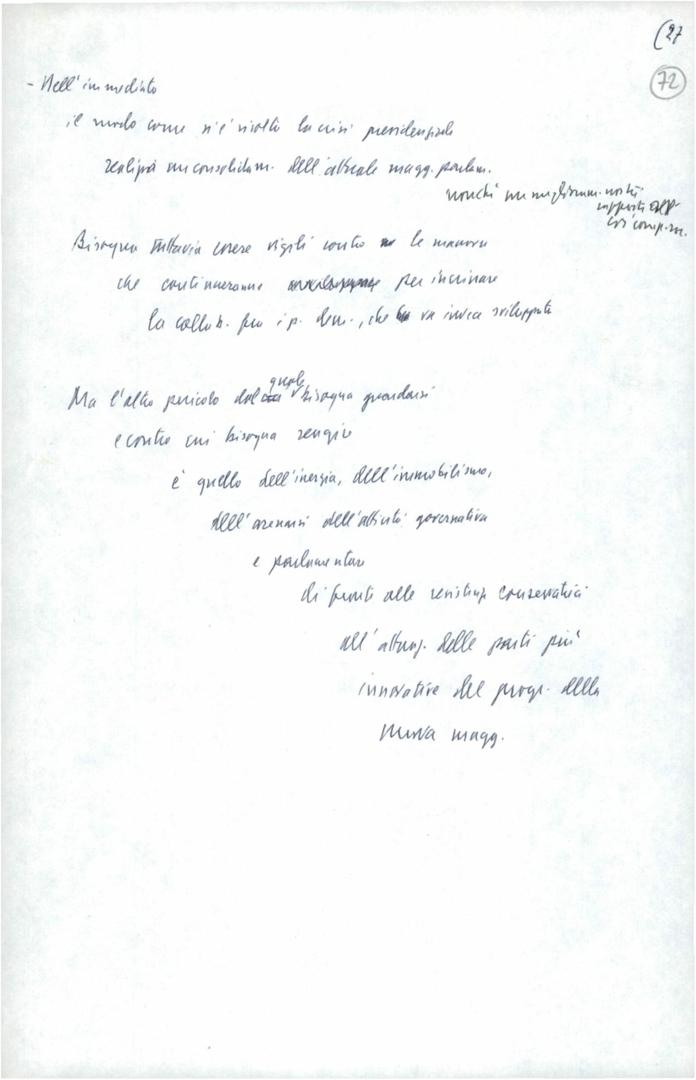 (27
72
- Nell'immediato
il modo come s'è risolta la crisi presidenziale
realizza un consolidam. dell'attuale magg. parlam.
nonché un miglioram. nostri
rapporti
così comp.
Bisogna tuttavia essere vigili contro le manovre
che continueranno per incrinare
la collab. fra i p. dem., che va invece sviluppata
Ma l'altro pericolo dal quale bisogna guardarsi
e contro cui bisogna reagire
è quello dell'inerzia, dell'immobilismo,
dell'arenarsi dell'attività governativa
e parlamentare
di fronte alle resistenze conservatrici
all'attuaz. delle parti più
innovative del progr. della
nuova magg.